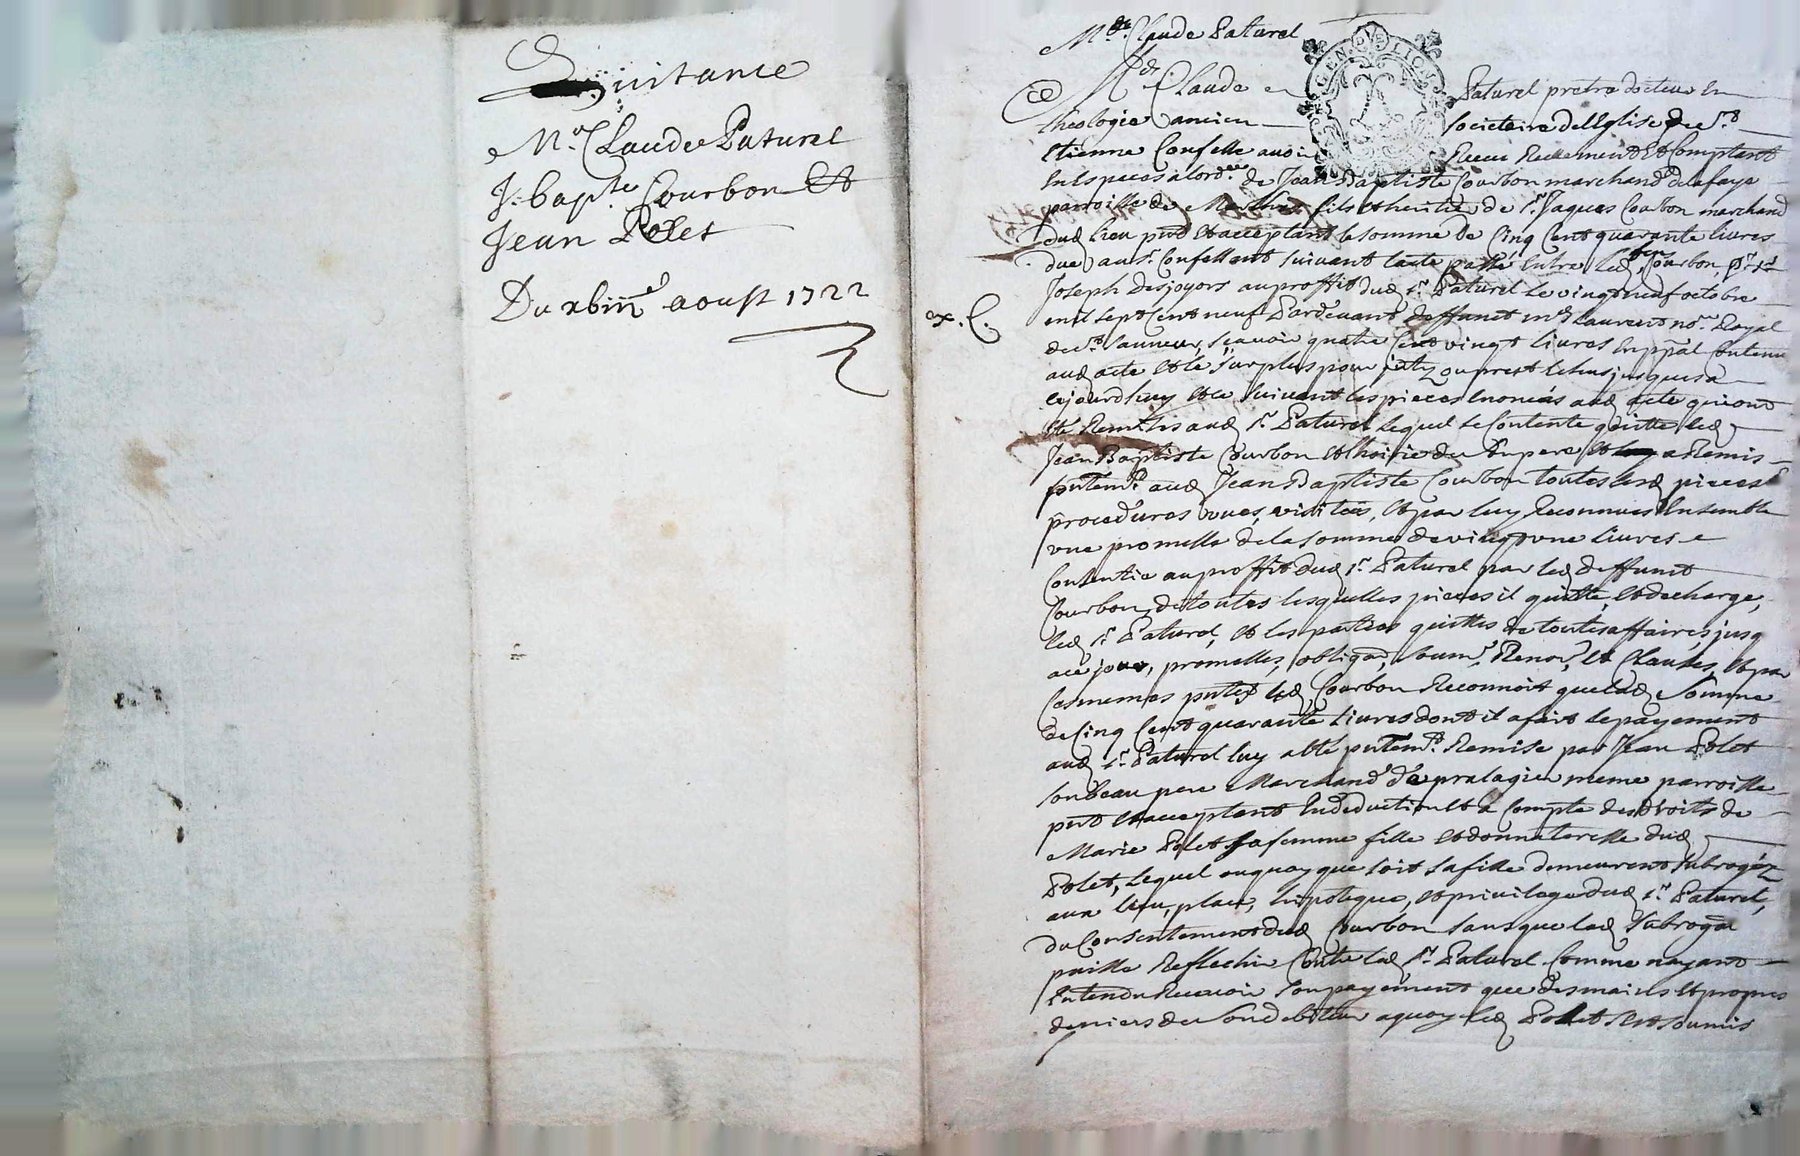 Quittance
Mr Claude Paturel
J. bapte Courbon Et
Jean Polet
Du xbiiie aoust 1722
ex. C.
Mre Claude Paturel
GEN. DE LION
Mre Claude Paturel pretre docteur En
theologie ancien societaire del'Eglise de st
Etienne Confesse avoir Receu Reellement Et Comptant
En Especes a lordre de Jean Baptiste Courbon marchand de lafaye
parroisse de fils Et heritier de sr Jaques Courbon marchand
dud Lieu pnt Et acceptant la somme de Cinq Cent quarante livres
due aud sr Confessant suivant lacte passé Entre led Courbon, sr
Joseph desjoyors au proffit dud sr Paturel le vingt neuf octobre
mil sept Cent neuf Pardevant deffunct me Laurent nore Royal
de st sauveur, sçavoir quatre Cent vingt livres En ppal Contenu
aud acte Et le surplus pour jusques a
cejourdhuy Et ce suivant les pieces Enoncés aud acte qui ont
Eté Remises aud sr Paturel lequel se Contente quitte led
Jean Baptiste Courbon Et hoirie du sr pere Et a Remis
pntemt aud Jean Baptiste Courbon toutes lesd pieces
procedures vues, visitées, Et par luy Reconnues Ensemble
une promesse de la somme de vingt une livres
Consentie au proffit dud sr Paturel par led deffunct
Courbon, de toutes lesquelles pieces il quitte, Et decharge,
led sr Paturel, Et les parties quittes de toutes affaires jusq
a ce jour, promesses, obligaon, soumn, Renon, Et Clauses, Et par
Ces memes pntes led Courbon Reconnoit que lad somme
de Cinq Cent quarante livres dont il a fait le payement
aud sr Paturel luy a Eté pntemt Remise par Jean Polet
son beau pere Marchand de pralagier meme parroisse
pnt Et acceptant En deduction Et a Compte des droits de
Marie Polet sa femme fille Et donnateresse dud
Polet, lequel ou quoy que soit sa fille demeurent subrogés
aux lieu, place, hipoteque, Et privilege dud sr Paturel,
du Consentement dud Courbon sans que lad subrogaon
puisse Reflechir Contre led sr Paturel Comme nayant
Entendu Recevoir son payement que des mains Et propres
deniers de son debiteur a quoy led Polet s'est soumis